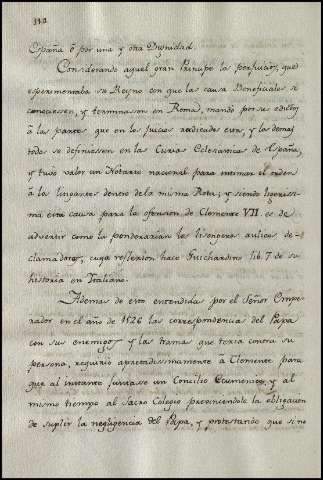 110
España ó por una y otra Dignidad.
Considerando aquel gran Principe los perjuicios, que
experimentaba su Reyno con que las causas Beneficiales se
conociessen, y terminassen en Roma, mandó por sus edictos
á las partes que en los Juicios
todo se definiessen en la Curia Eclesiastica de España,
y tuvo valor un Notario nacional para intimar el orden
á los litigantes dentro de la misma Rota; y siendo
ma esta causa para la ofension de Clemente VII. es de
advertir como la ponderarian los lisongeros aulicos de-
clamadores, cuya reflexion hace Guichardino lib. 7 de su
historia en Italiano.
Ademas de esto entendida por el Señor Empe-
rador en el año de 1526 la correspondencia del Papa
con sus enemigos y las tramas que texia contra su
persona, requirió apretadissimamente á Clemente para
que al instante juntase un Concilio Ecumenico, y al
mismo tiempo al Sacro Colegio previniendole la obligacion
de suplir la negligencia del Papa, y protestando que si no